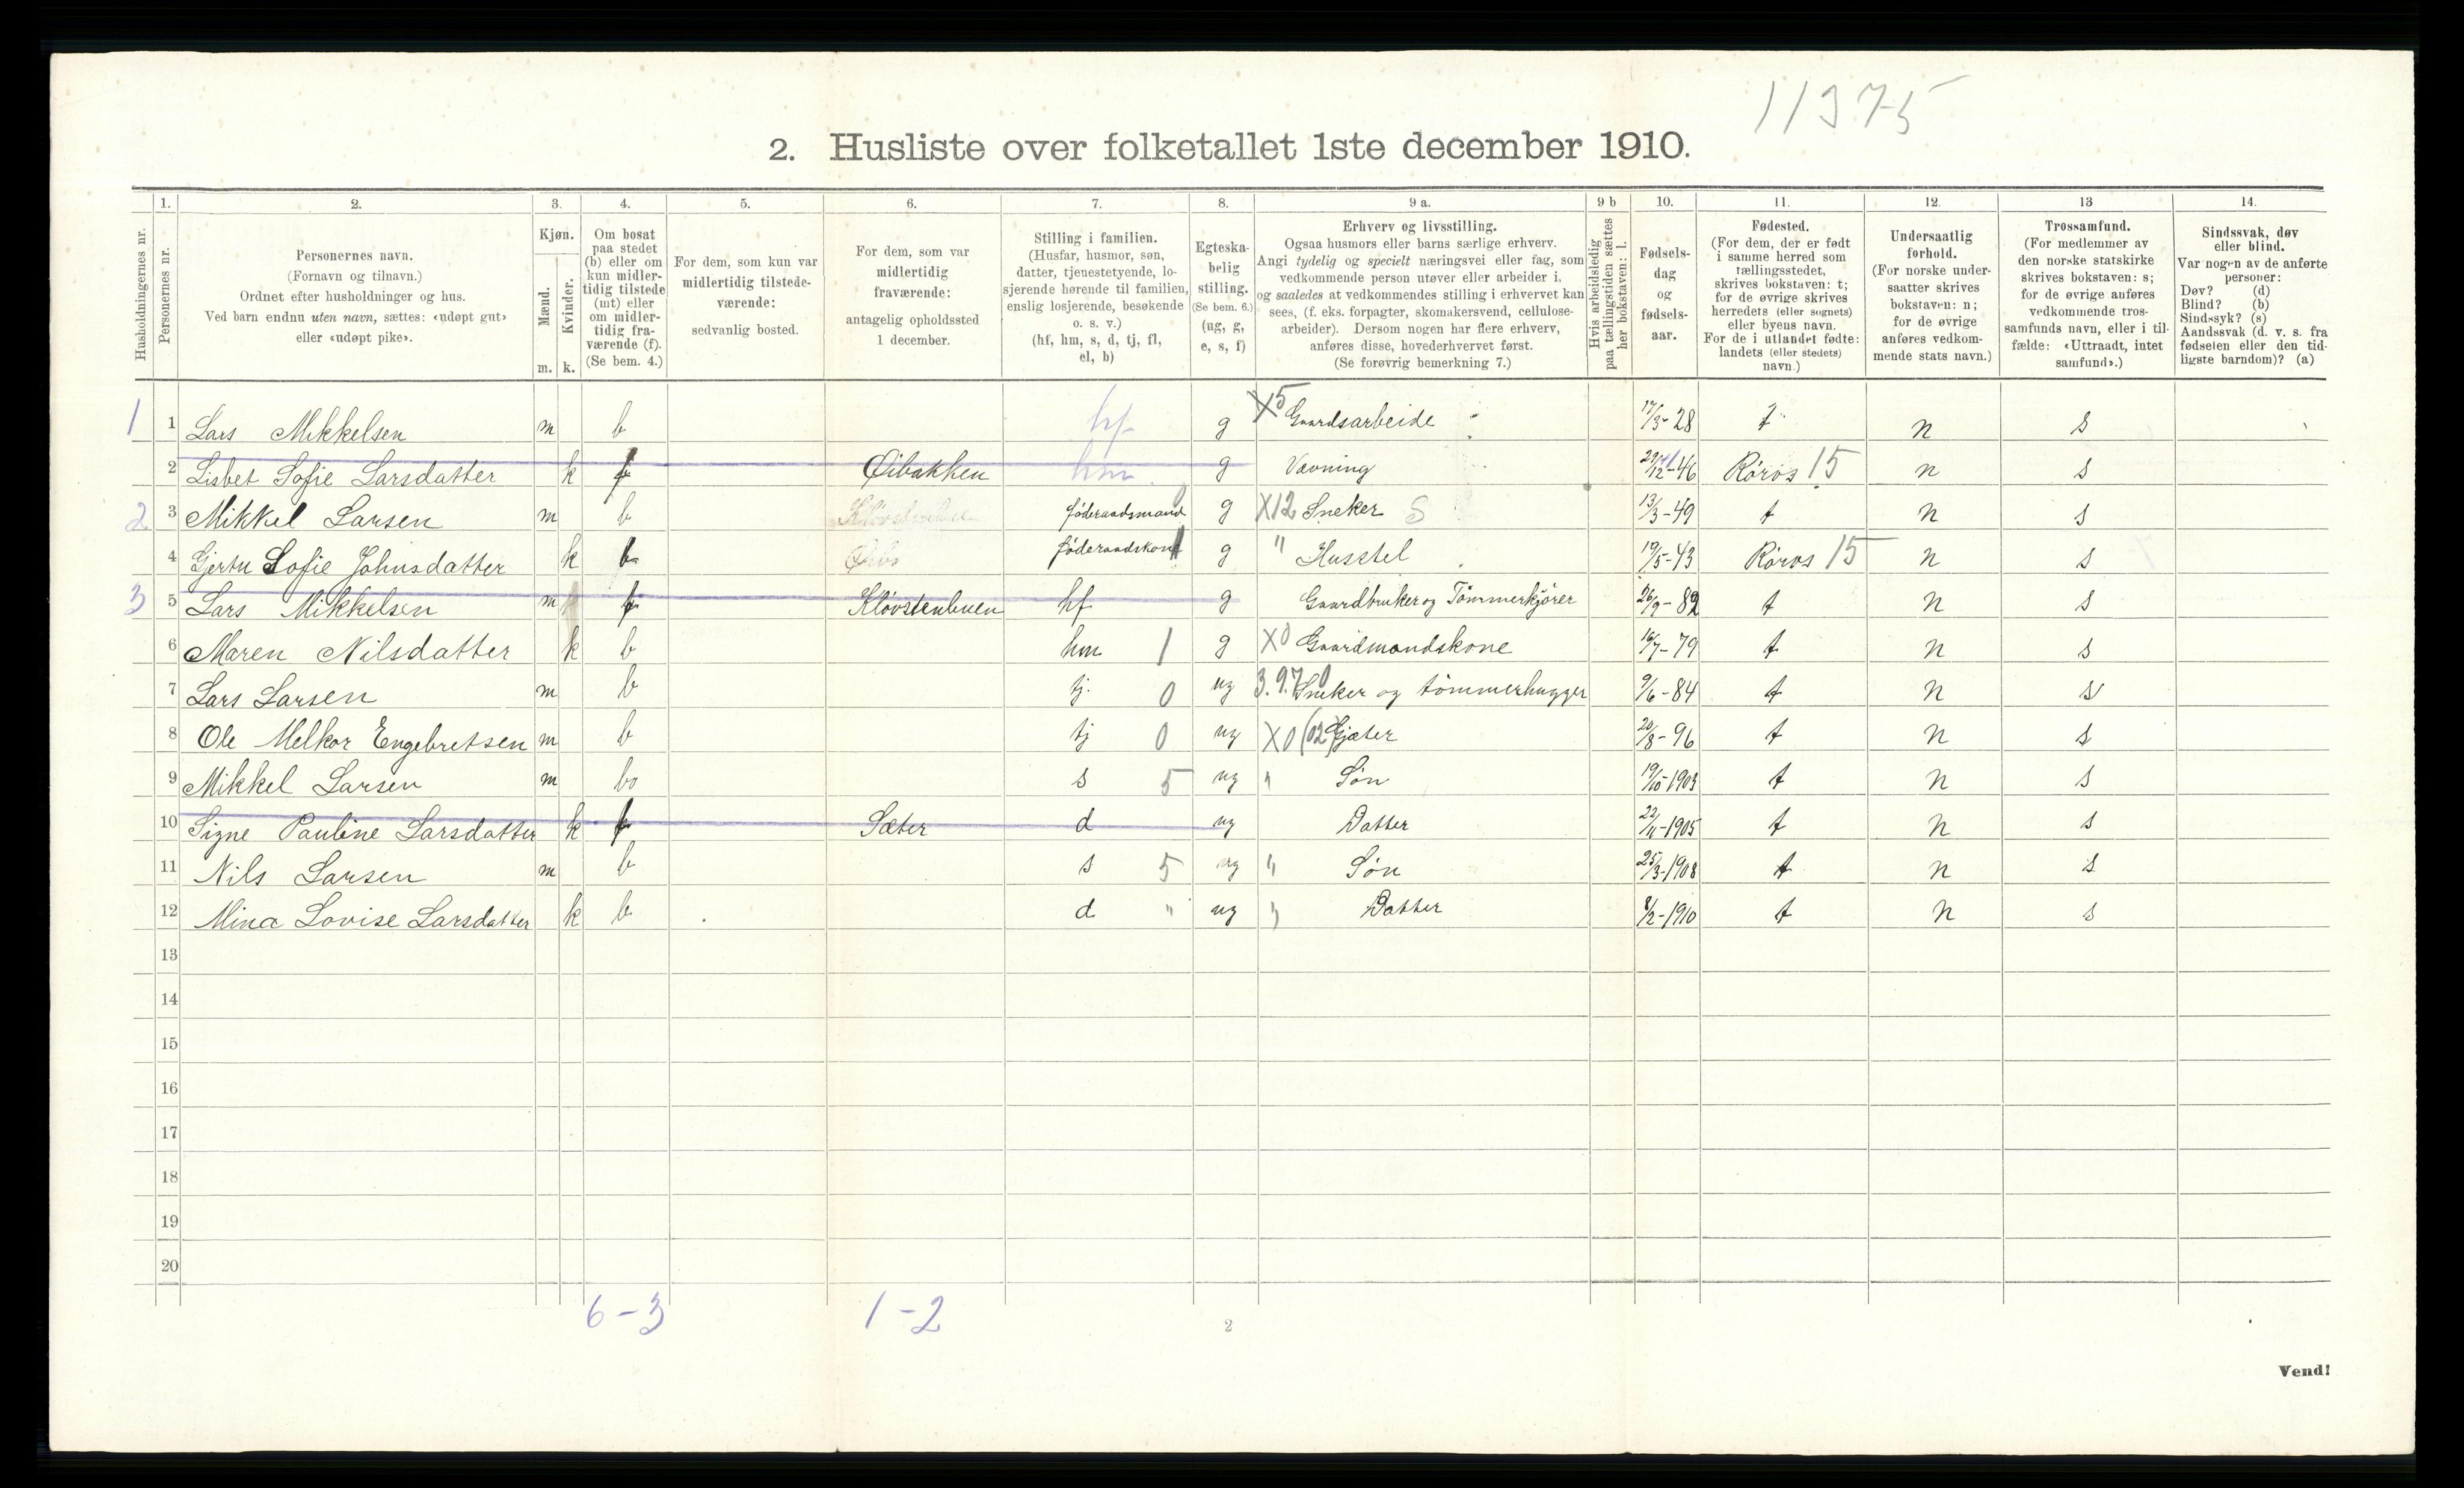 11375
2. Husliste over folketallet 1ste december 1910.
Husholdningernes nr.
1.
Personernes nr.
2.
Personernes navn.
(Fornavn og tilnavn.)
Ordnet efter husholdninger og hus.
Ved barn endnu uten navn, sættes: «udøpt gut»
eller «udøpt pike».
3.
Kjøn.
Mænd.
Kvinder.
m. k.
4.
Om bosat
paa stedet
(b) eller om
kun midler-
tidig tilstede
(mt) eller
om midler-
tidig fra-
værende (f).
(Se bem. 4.)
5.
For dem, som kun var
midlertidig tilstede-
værende:
sedvanlig bosted.
6.
For dem, som var
midlertidig
fraværende:
antagelig opholdssted
1 december.
7.
Stilling i familien.
(Husfar, husmor, søn,
datter, tjenestetyende, lo-
sjerende hørende til familien,
enslig losjerende, besøkende
o. s. v.)
(hf, hm, s, d, tj, fl,
el, b)
8.
Egteska-
belig
stilling.
(Se bem. 6.)
(ug, g,
e, s, f)
9 a.
Erhverv og livsstilling.
Ogsaa husmors eller barns særlige erhverv.
Angi tydelig og specielt næringsvei eller fag, som
vedkommende person utøver eller arbeider i,
og saaledes at vedkommendes stilling i erhvervet kan
sees, (f. eks. forpagter, skomakersvend, cellulose-
arbeider). Dersom nogen har flere erhverv,
anføres disse, hovederhvervet først.
(Se forøvrig bemerkning 7.)
9 b
Hvis arbeidsledig
paa tællingstiden sættes
her bokstaven: l.
10.
Fødsels-
dag
og
fødsels-
aar.
11.
Fødested.
(For dem, der er født
i samme herred som
tællingsstedet,
skrives bokstaven: t;
for de øvrige skrives
herredets (eller sognets)
eller byens navn.
For de i utlandet fødte:
landets (eller stedets)
navn.)
12.
Undersaatlig
forhold.
(For norske under-
saatter skrives
bokstaven: n;
for de øvrige
anføres vedkom-
mende stats navn.)
13
Trossamfund.
(For medlemmer av
den norske statskirke
skrives bokstaven: s;
for de øvrige anføres
vedkommende tros-
samfunds navn, eller i til-
fælde: «Uttraadt, intet
samfund».)
14.
Sindssvak, døv
eller blind.
Var nogen av de anførte
personer:
Døv? (d)
Blind? (b)
Sindssyk? (s)
Aandssvak (d. v. s. fra
fødselen eller den tid-
ligste barndom)? (a)
1 1 Lars Mikkelsen m b hf g X5 Gaardsarbeide 17/3-28 t n s
2 Lisbet Sofie Larsdatter k f Øibakken hm g Vævning 29/12-46 Røros 15 n s
2 3 Mikkel Larsen m b føderaadsmand 0 g X12 Sneker S 13/3-49 t n s
4 Gjertru Sofie Johnsdatter k b føderaadskone 1 g " Husstel 19/5-43 Røros 15 n s
3 5 Lars Mikkelsen m f Kløvstenbuen hf g Gaardbruker og Tømmerkjører 26/9-82 t n s
6 Maren Nilsdatter k b hm 1 g X0 Gaardmandskone 16/7-79 t n s
7 Lars Larsen m b tj. 0 ug 3.9.70 Sneker og tømmerhugger 9/6-84 t n s
8 Ole Melkor Engebretsen m b tj 0 ug X0 (02) Gjæter 20/8-96 t n s
9 Mikkel Larsen m bo s 5 ug " Søn 19/10-1903 t n s
10 Signe Pauline Larsdatter k f Sæter d ug Datter 22/11-1905 t n s
11 Nils Larsen m b s 5 ug " Søn 25/3-1908 t n s
12 Mina Lovise Larsdatter k b d " ug " Datter 8/2-1910 t n s
13
14
15
16
17
18
19
20
6-3 1-2
2
Vend!